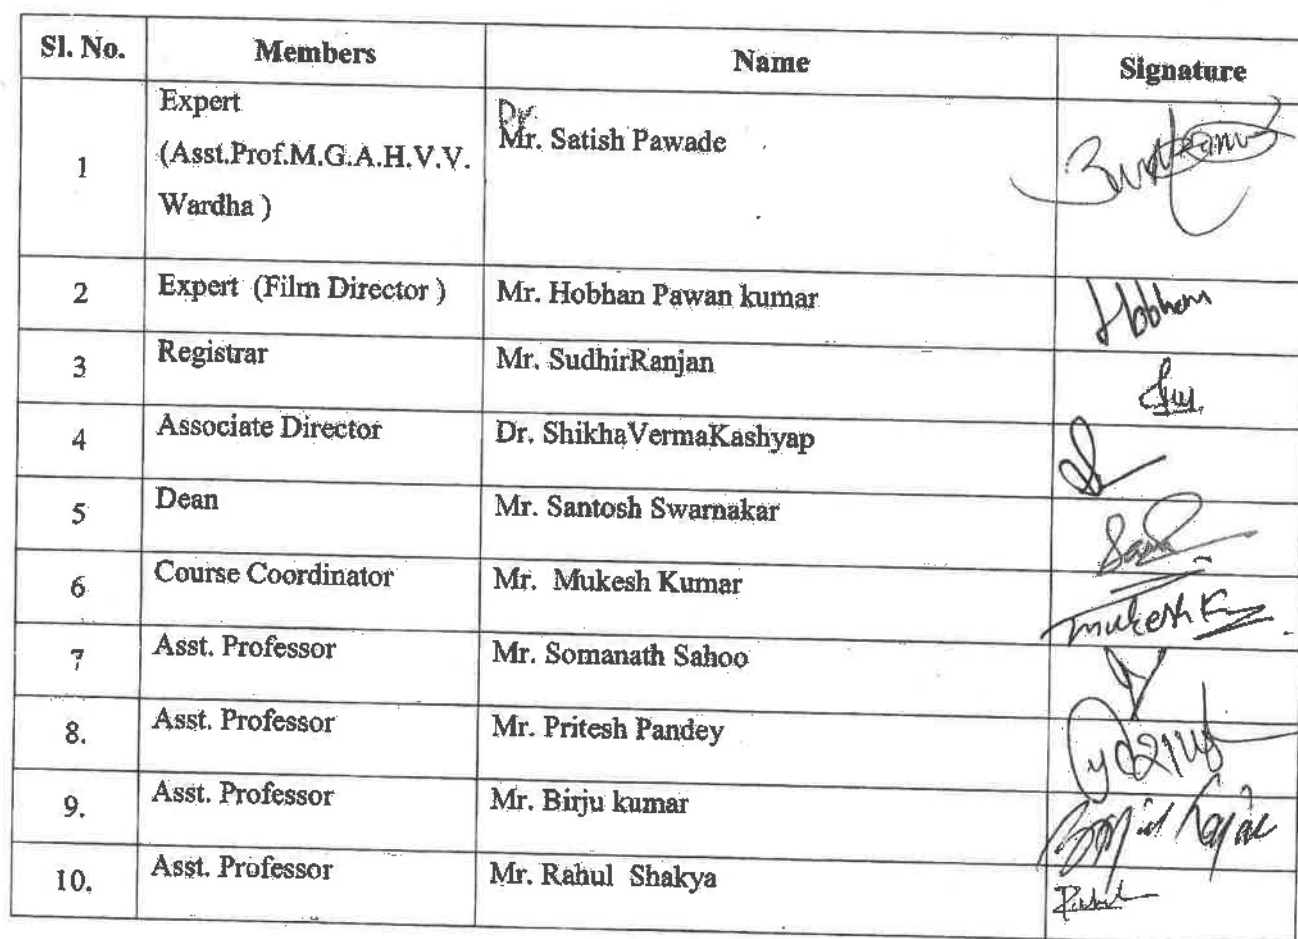 Sl. No. Members Name Signature
Expert
Dr.
1 (Asst.Prof.M.G.A.H.V.V. Mr. Satish Pawade
Wardha )
2 Expert (Film Director ) Mr. Hobhan Pawan kumar Hobhan
3 Registrar Mr. SudhirRanjan
4 Associate Director Dr. ShikhaVermaKashyap
5 Dean Mr. Santosh Swarnakar
6 Course Coordinator Mr. Mukesh Kumar Mukesh K
7 Asst. Professor Mr. Somanath Sahoo
8. Asst. Professor Mr. Pritesh Pandey
9. Asst. Professor Mr. Birju kumar
10. Asst. Professor Mr. Rahul Shakya Rahul